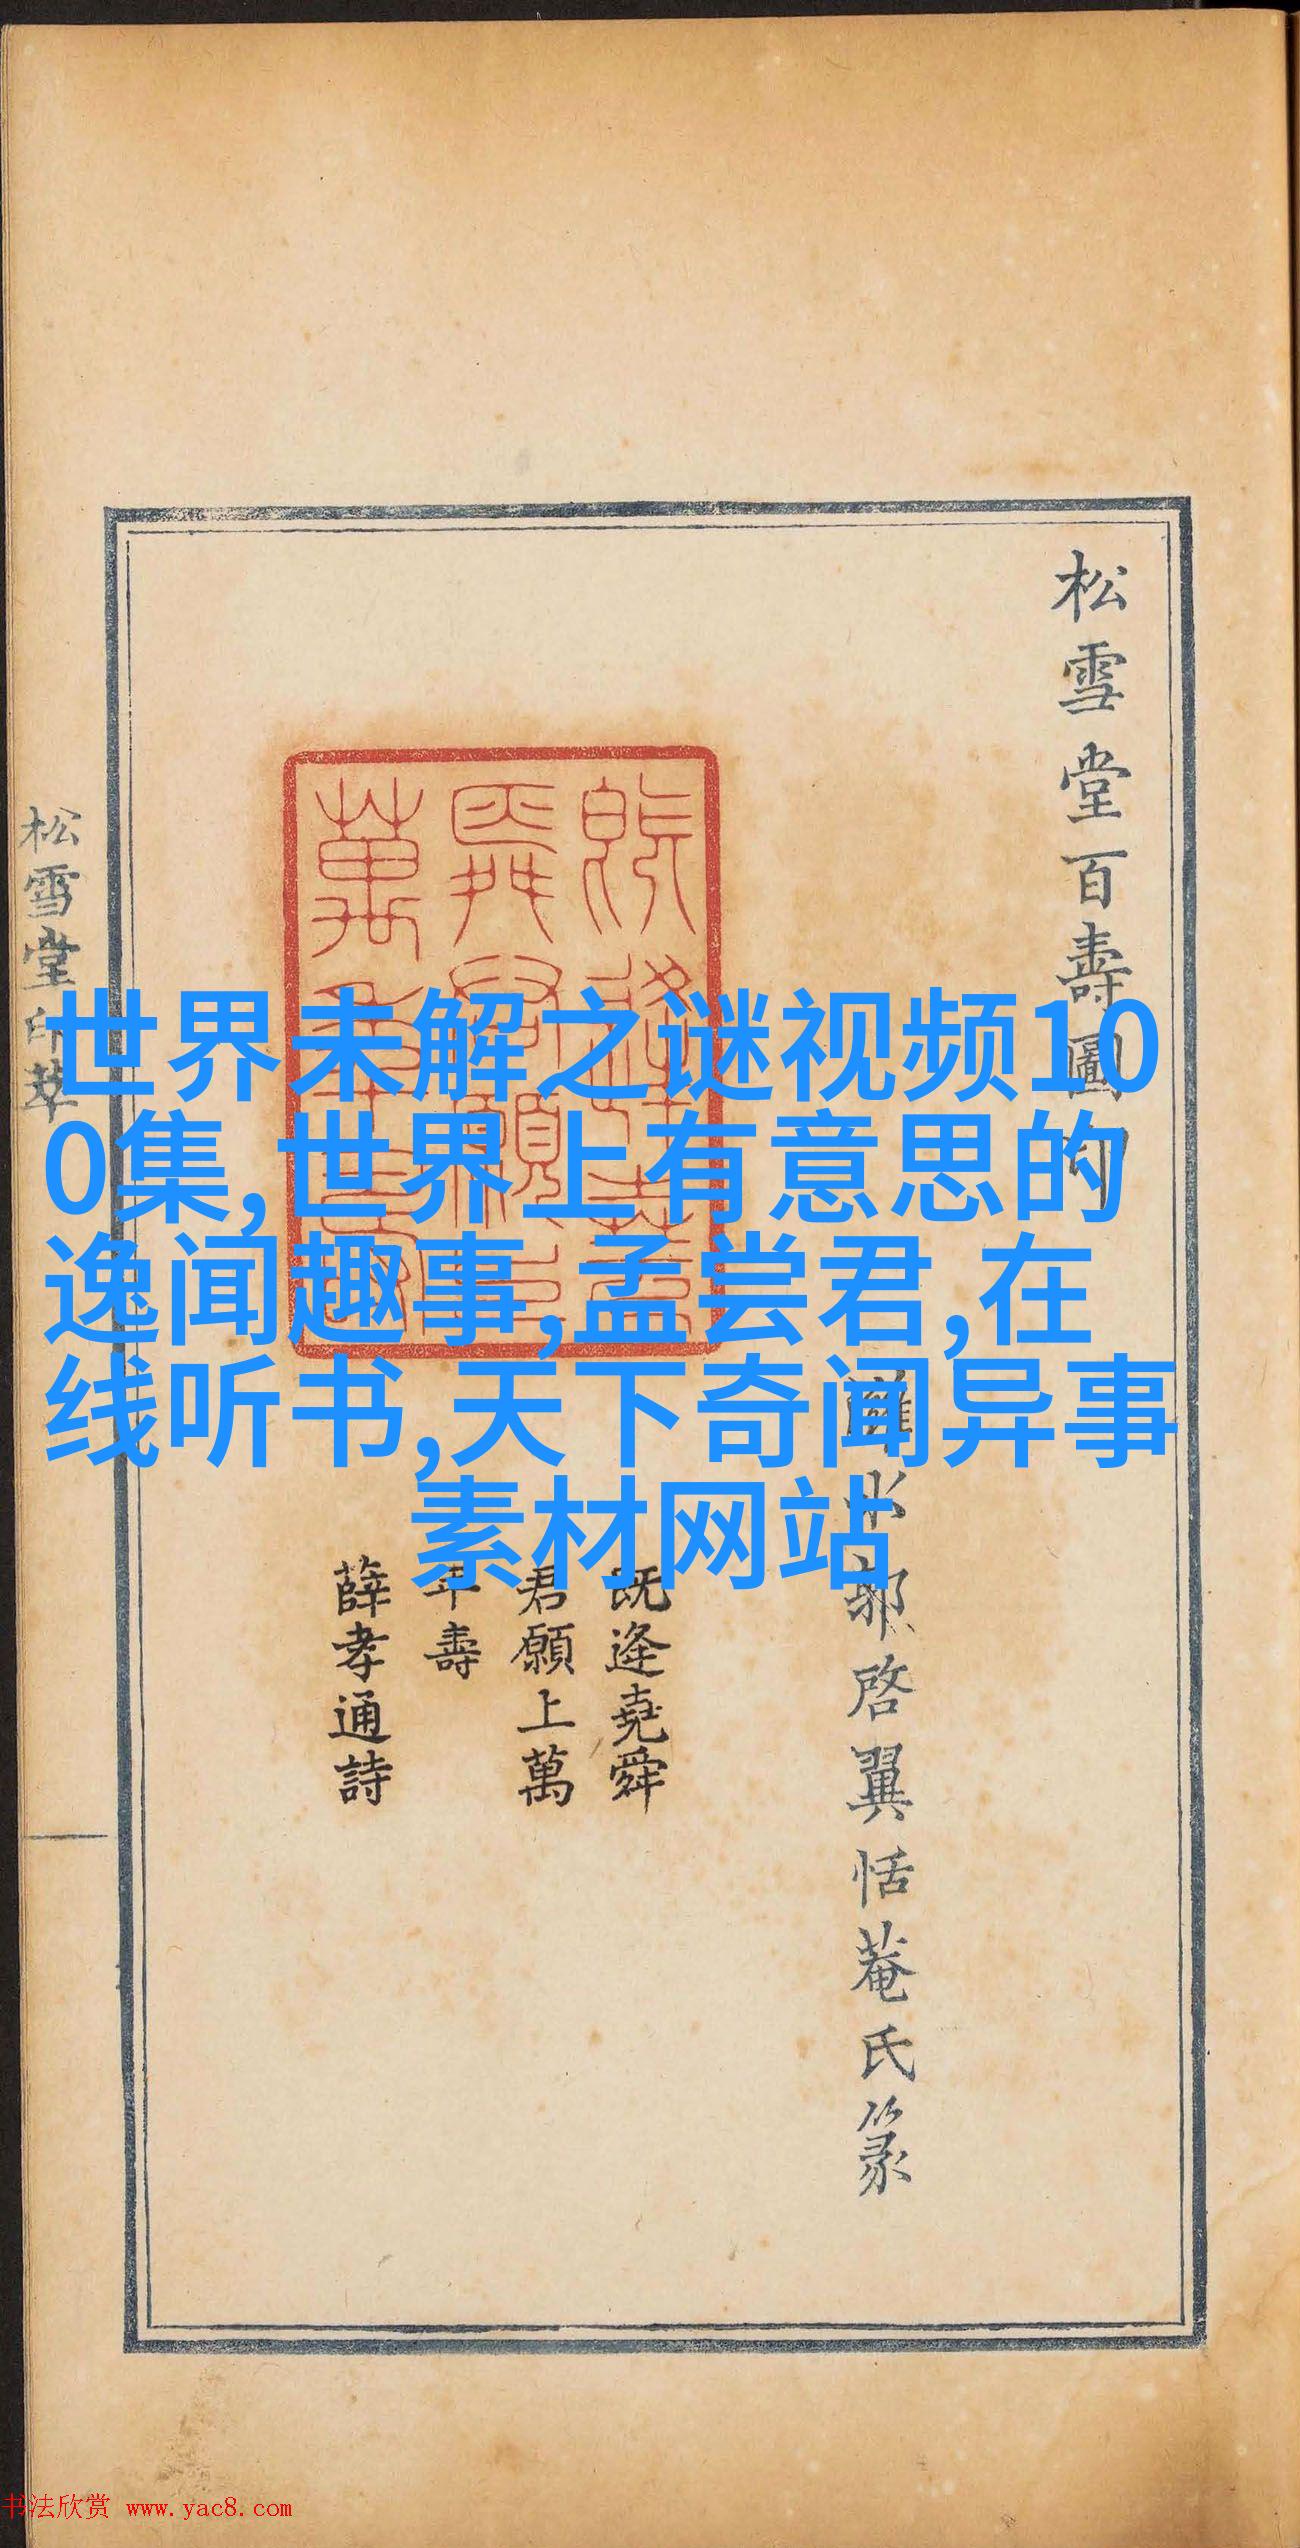 松雪堂百壽圖印
水郭啓翼恬菴氏篆
既逢堯舜
君願上萬
年壽
薛孝通詩
松雪堂印萃
世界未解之谜视频10
0集,世界上有意思的
逸闻趣事,孟尝君,在
线听书,天下奇闻异事
素材网站
书法欣赏 www.yac8.com